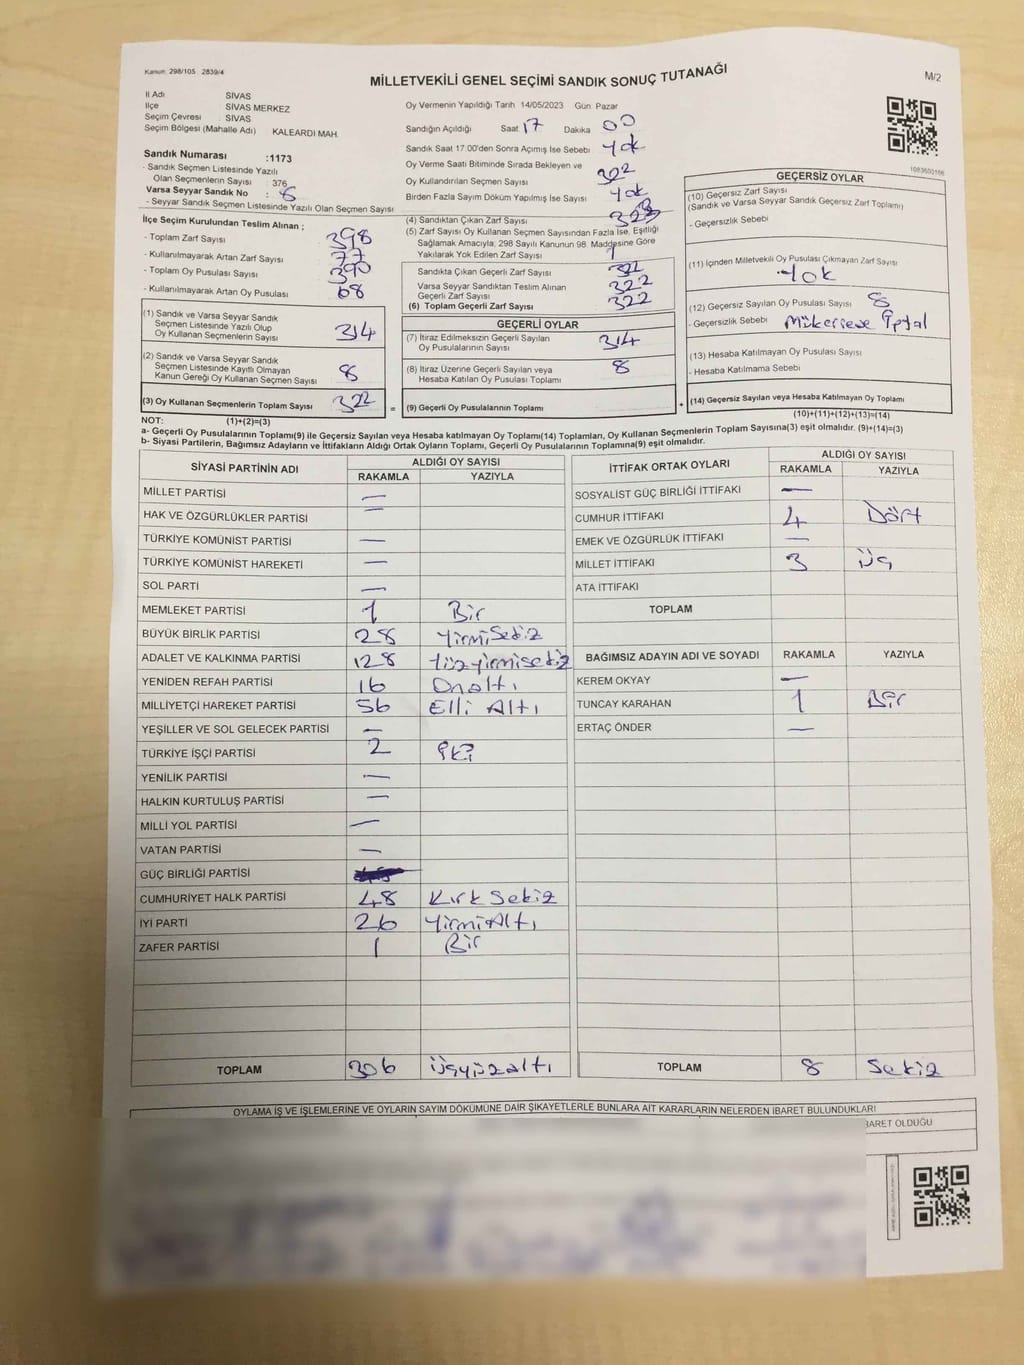 Kanun: 298/105 2839/4
MİLLETVEKİLİ GENEL SEÇİMİ SANDIK SONUÇ TUTANAĞI
M/2
İl Adı SİVAS
İlçe SİVAS MERKEZ
Seçim Çevresi : SİVAS
Seçim Bölgesi (Mahalle Adı) KALEARDI MAH.
Sandık Numarası :1173
- Sandık Seçmen Listesinde Yazılı
Olan Seçmenlerin Sayısı : 376
Varsa Seyyar Sandık No : 8
- Seyyar Sandık Seçmen Listesinde Yazılı Olan Seçmen Sayısı
İlçe Seçim Kurulundan Teslim Alınan ;
- Toplam Zarf Sayısı 398
- Kullanılmayarak Artan Zarf Sayısı 77
- Toplam Oy Pusulası Sayısı 390
- Kullanılmayarak Artan Oy Pusulası 68
(1) Sandık ve Varsa Seyyar Sandık
Seçmen Listesinde Yazılı Olup
Oy Kullanan Seçmenlerin Sayısı 314
(2) Sandık ve Varsa Seyyar Sandık
Seçmen Listesinde Kayıtlı Olmayan
Kanun Gereği Oy Kullanan Seçmen Sayısı 8
(3) Oy Kullanan Seçmenlerin Toplam Sayısı 322
Oy Vermenin Yapıldığı Tarih 14/05/2023 Gün Pazar
Sandığın Açıldığı Saat 17 Dakika 00
Sandık Saat 17:00'den Sonra Açılmış İse Sebebi Yok
Oy Verme Saati Bitiminde Sırada Bekleyen ve
Oy Kullandırılan Seçmen Sayısı 322
Birden Fazla Sayım Döküm Yapılmış İse Sayısı Yok
(4) Sandıktan Çıkan Zarf Sayısı 323
(5) Zarf Sayısı Oy Kullanan Seçmen Sayısından Fazla İse, Eşitliği
Sağlamak Amacıyla, 298 Sayılı Kanunun 98. Maddesine Göre
Yakılarak Yok Edilen Zarf Sayısı 1
Sandıkta Çıkan Geçerli Zarf Sayısı 322
Varsa Seyyar Sandıktan Teslim Alınan 322
Geçerli Zarf Sayısı
(6) Toplam Geçerli Zarf Sayısı 322
GEÇERLİ OYLAR
(7) İtiraz Edilmeksizin Geçerli Sayılan
Oy Pusulalarının Sayısı 314
(8) İtiraz Üzerine Geçerli Sayılan veya
Hesaba Katılan Oy Pusulası Toplamı 8
= (9) Geçerli Oy Pusulalarının Toplamı +
GEÇERSİZ OYLAR
(10) Geçersiz Zarf Sayısı
(Sandık ve Varsa Seyyar Sandık Geçersiz Zarf Toplamı)
- Geçersizlik Sebebi
(11) İçinden Milletvekili Oy Pusulası Çıkmayan Zarf Sayısı
Yok
(12) Geçersiz Sayılan Oy Pusulası Sayısı 8
- Geçersizlik Sebebi
(13) Hesaba Katılmayan Oy Pusulası Sayısı
- Hesaba Katılmama Sebebi
(14) Geçersiz Sayılan veya Hesaba Katılmayan Oy Toplamı
NOT: (1)+(2)=(3) (10)+(11)+(12)+(13)=(14)
a- Geçerli Oy Pusulalarının Toplamı(9) ile Geçersiz Sayılan veya Hesaba katılmayan Oy Toplamı(14) Toplamları, Oy Kullanan Seçmenlerin Toplam Sayısına(3) eşit olmalıdır. (9)+(14)=(3)
b- Siyasi Partilerin, Bağımsız Adayların ve İttifakların Aldığı Ortak Oyların Toplamı, Geçerli Oy Pusulalarının Toplamına(9) eşit olmalıdır.
SİYASİ PARTİNİN ADI ALDIĞI OY SAYISI
RAKAMLA YAZIYLA
MİLLET PARTİSİ —
HAK VE ÖZGÜRLÜKLER PARTİSİ —
TÜRKİYE KOMÜNİST PARTİSİ —
TÜRKİYE KOMÜNİST HAREKETİ —
SOL PARTİ —
MEMLEKET PARTİSİ 1 Bir
BÜYÜK BİRLİK PARTİSİ 28 YirmiSekiz
ADALET VE KALKINMA PARTİSİ 128 Yüzyirmisekiz
YENİDEN REFAH PARTİSİ 16 Onaltı
MİLLİYETÇİ HAREKET PARTİSİ 56 Elli Altı
YEŞİLLER VE SOL GELECEK PARTİSİ —
TÜRKİYE İŞÇİ PARTİSİ 2 İki
YENİLİK PARTİSİ —
HALKIN KURTULUŞ PARTİSİ —
MİLLİ YOL PARTİSİ —
VATAN PARTİSİ —
GÜÇ BİRLİĞİ PARTİSİ
CUMHURİYET HALK PARTİSİ 48 Kırk Sekiz
İYİ PARTİ 26 YirmiAltı
ZAFER PARTİSİ 1 Bir
TOPLAM 306 Üçyüzaltı
İTTİFAK ORTAK OYLARI ALDIĞI OY SAYISI
RAKAMLA YAZIYLA
SOSYALİST GÜÇ BİRLİĞİ İTTİFAKI —
CUMHUR İTTİFAKI 4 Dört
EMEK VE ÖZGÜRLÜK İTTİFAKI —
MİLLET İTTİFAKI 3 Üç
ATA İTTİFAKI
TOPLAM
BAĞIMSIZ ADAYIN ADI VE SOYADI RAKAMLA YAZIYLA
KEREM OKYAY —
TUNCAY KARAHAN 1 Bir
ERTAÇ ÖNDER —
TOPLAM 8 Sekiz
OYLAMA İŞ VE İŞLEMLERİNE VE OYLARIN SAYIM DÖKÜMÜNE DAİR ŞİKAYETLERLE BUNLARA AİT KARARLARIN NELERDEN İBARET BULUNDUKLARI
BARET OLDUĞU